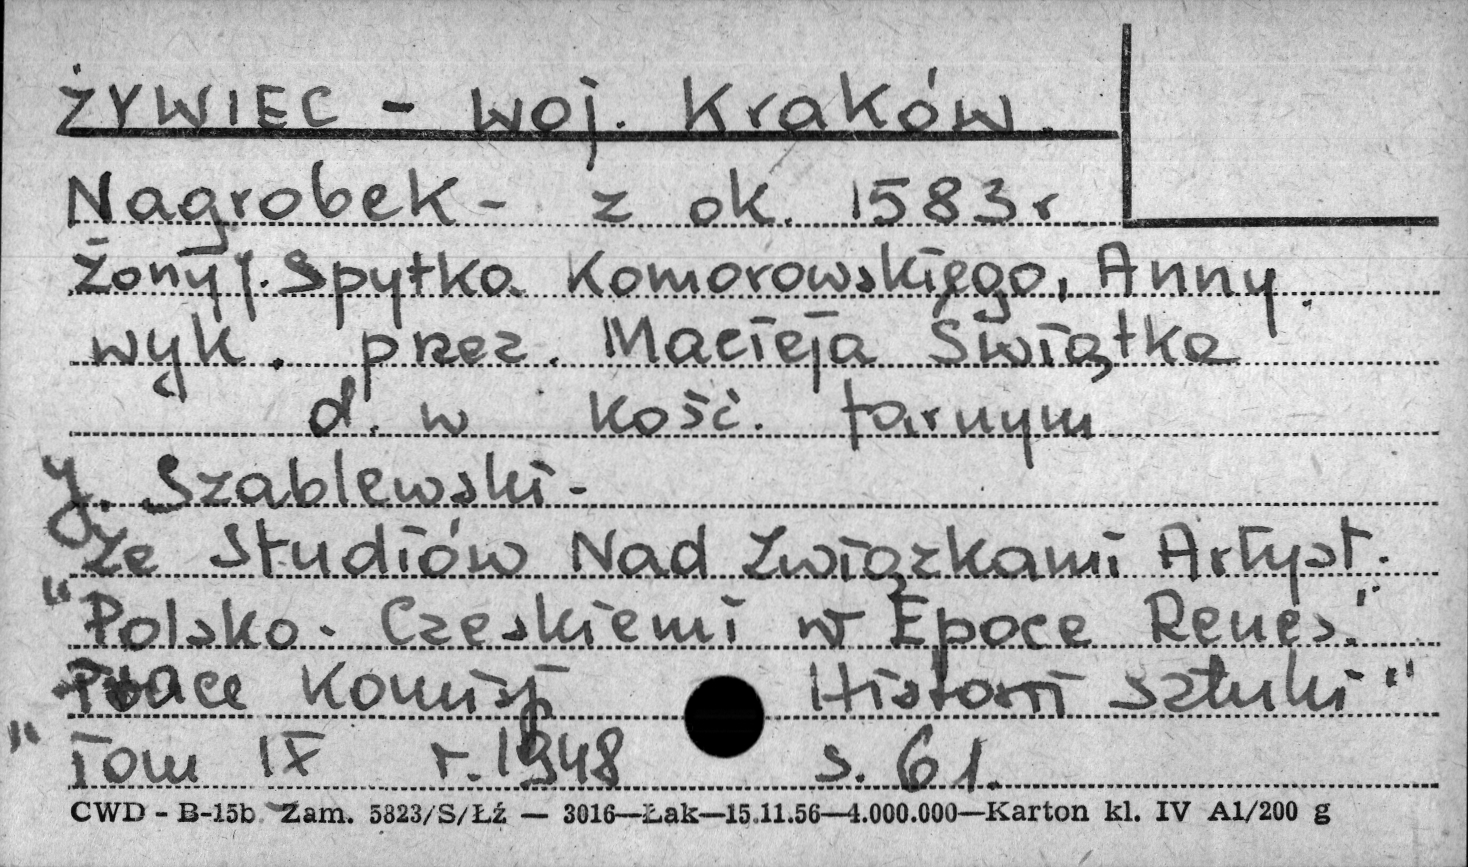 ŻYWIEC - woj. Kraków.
Nagrobek - z ok. 1583 r
Żony J. Spytka Komorowskiego, Anny.
wyk. przez. Macieja Świątka
d. w kość. farnym
J. Szablewski -
Ze Studiów Nad Związkami Artyst.
"Polsko - Czeskiemi w Epoce Renes."
Prace Komisji Historii Sztuki"
"Tom IX r. 1948 s. 61.
CWD - B-15b Zam. 5823/S/Łź — 3016—Łak—15.11.56—4.000.000—Karton kl. IV A1/200 g